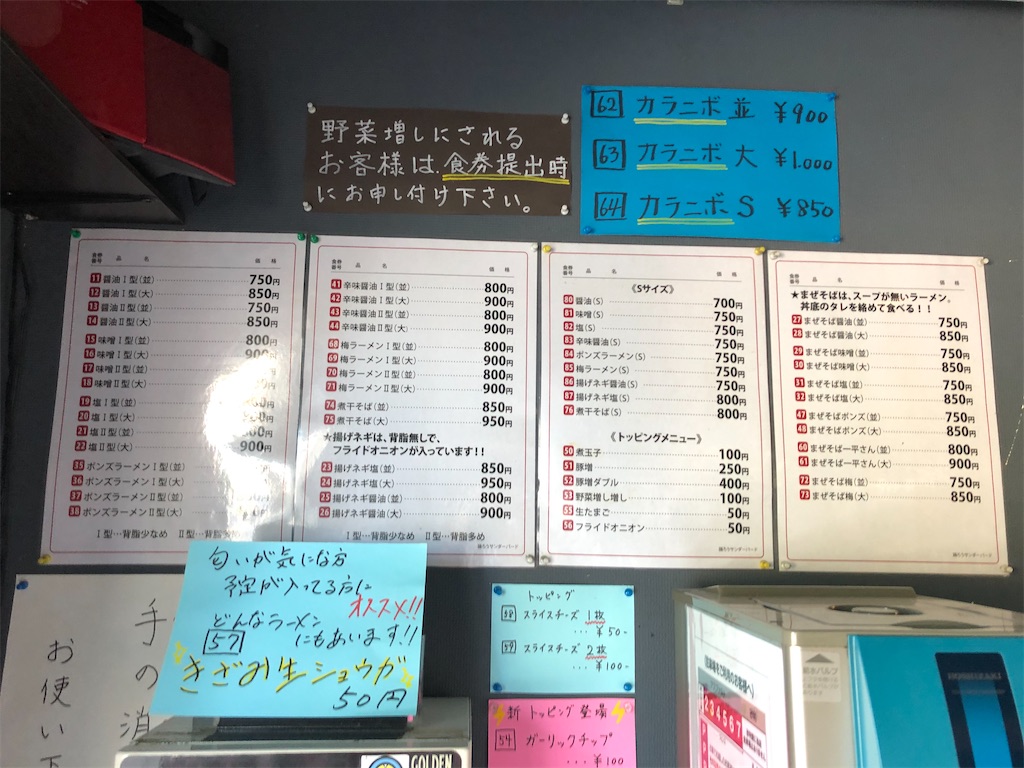 野菜増しにされる
お客様は、食券提出時
にお申し付け下さい。
62 カラニボ 並 ¥900
63 カラニボ 大 ¥1.000
64 カラニボ S ¥850
食券番号 品名 価格
11 醤油Ⅰ型(並) 750円
12 醤油Ⅰ型(大) 850円
13 醤油Ⅱ型(並) 750円
14 醤油Ⅱ型(大) 850円
15 味噌Ⅰ型(並) 800円
16 味噌Ⅰ型(大) 900円
17 味噌Ⅱ型(並)
18 味噌Ⅱ型(大)
19 塩Ⅰ型(並)
20 塩Ⅰ型(大)
21 塩Ⅱ型(並)
22 塩Ⅱ型(大) 900円
35 ポンズラーメンⅠ型(並)
36 ポンズラーメンⅠ型(大)
37 ポンズラーメンⅡ型(並)
38 ポンズラーメンⅡ型(大)
Ⅰ型…背脂少なめ Ⅱ型…背脂多め
食券番号 品名 価格
41 辛味醤油Ⅰ型(並) 800円
42 辛味醤油Ⅰ型(大) 900円
43 辛味醤油Ⅱ型(並) 800円
44 辛味醤油Ⅱ型(大) 900円
68 梅ラーメンⅠ型(並) 800円
69 梅ラーメンⅠ型(大) 900円
70 梅ラーメンⅡ型(並) 800円
71 梅ラーメンⅡ型(大) 900円
74 煮干そば(並) 850円
75 煮干そば(大) 950円
★揚げネギは、背脂無しで、
フライドオニオンが入っています!!
23 揚げネギ塩(並) 850円
24 揚げネギ塩(大) 950円
25 揚げネギ醤油(並) 800円
26 揚げネギ醤油(大) 900円
Ⅰ型…背脂少なめ Ⅱ型…背脂多め
食券番号 品名 価格
《Sサイズ》
80 醤油(S) 700円
81 味噌(S) 750円
82 塩(S) 750円
83 辛味醤油(S) 750円
84 ポンズラーメン(S) 750円
85 梅ラーメン(S) 750円
86 揚げネギ醤油(S) 750円
87 揚げネギ塩(S) 800円
76 煮干そば(S) 800円
《トッピングメニュー》
50 煮玉子 100円
51 豚増 250円
52 豚増ダブル 400円
53 野菜増し増し 100円
55 生たまご 50円
56 フライドオニオン 50円
麺たろサンダーバード
食券番号 品名 価格
★まぜそばは、スープが無いラーメン。
丼底のタレを絡めて食べる!!
27 まぜそば醤油(並) 750円
28 まぜそば醤油(大) 850円
29 まぜそば味噌(並) 750円
30 まぜそば味噌(大) 850円
31 まぜそば塩(並) 750円
32 まぜそば塩(大) 850円
47 まぜそばポンズ(並) 750円
48 まぜそばポンズ(大) 850円
60 まぜそば一平さん(並) 800円
61 まぜそば一平さん(大) 900円
72 まぜそば梅(並) 750円
73 まぜそば梅(大) 850円
麺たろサンダーバード
匂いが気になる方
予定が入ってる方に
オススメ!!
どんなラーメン
にもあいます!!
57
きざみ生ショウガ
50円
トッピング
58 スライスチーズ 1枚
… ¥50-
59 スライスチーズ 2枚
… ¥100-
新トッピング登場
54 ガーリックチップ
… ¥100
手の消
お使い下
GOLDEN
HOSHIZAKI
給水バルブ
234567